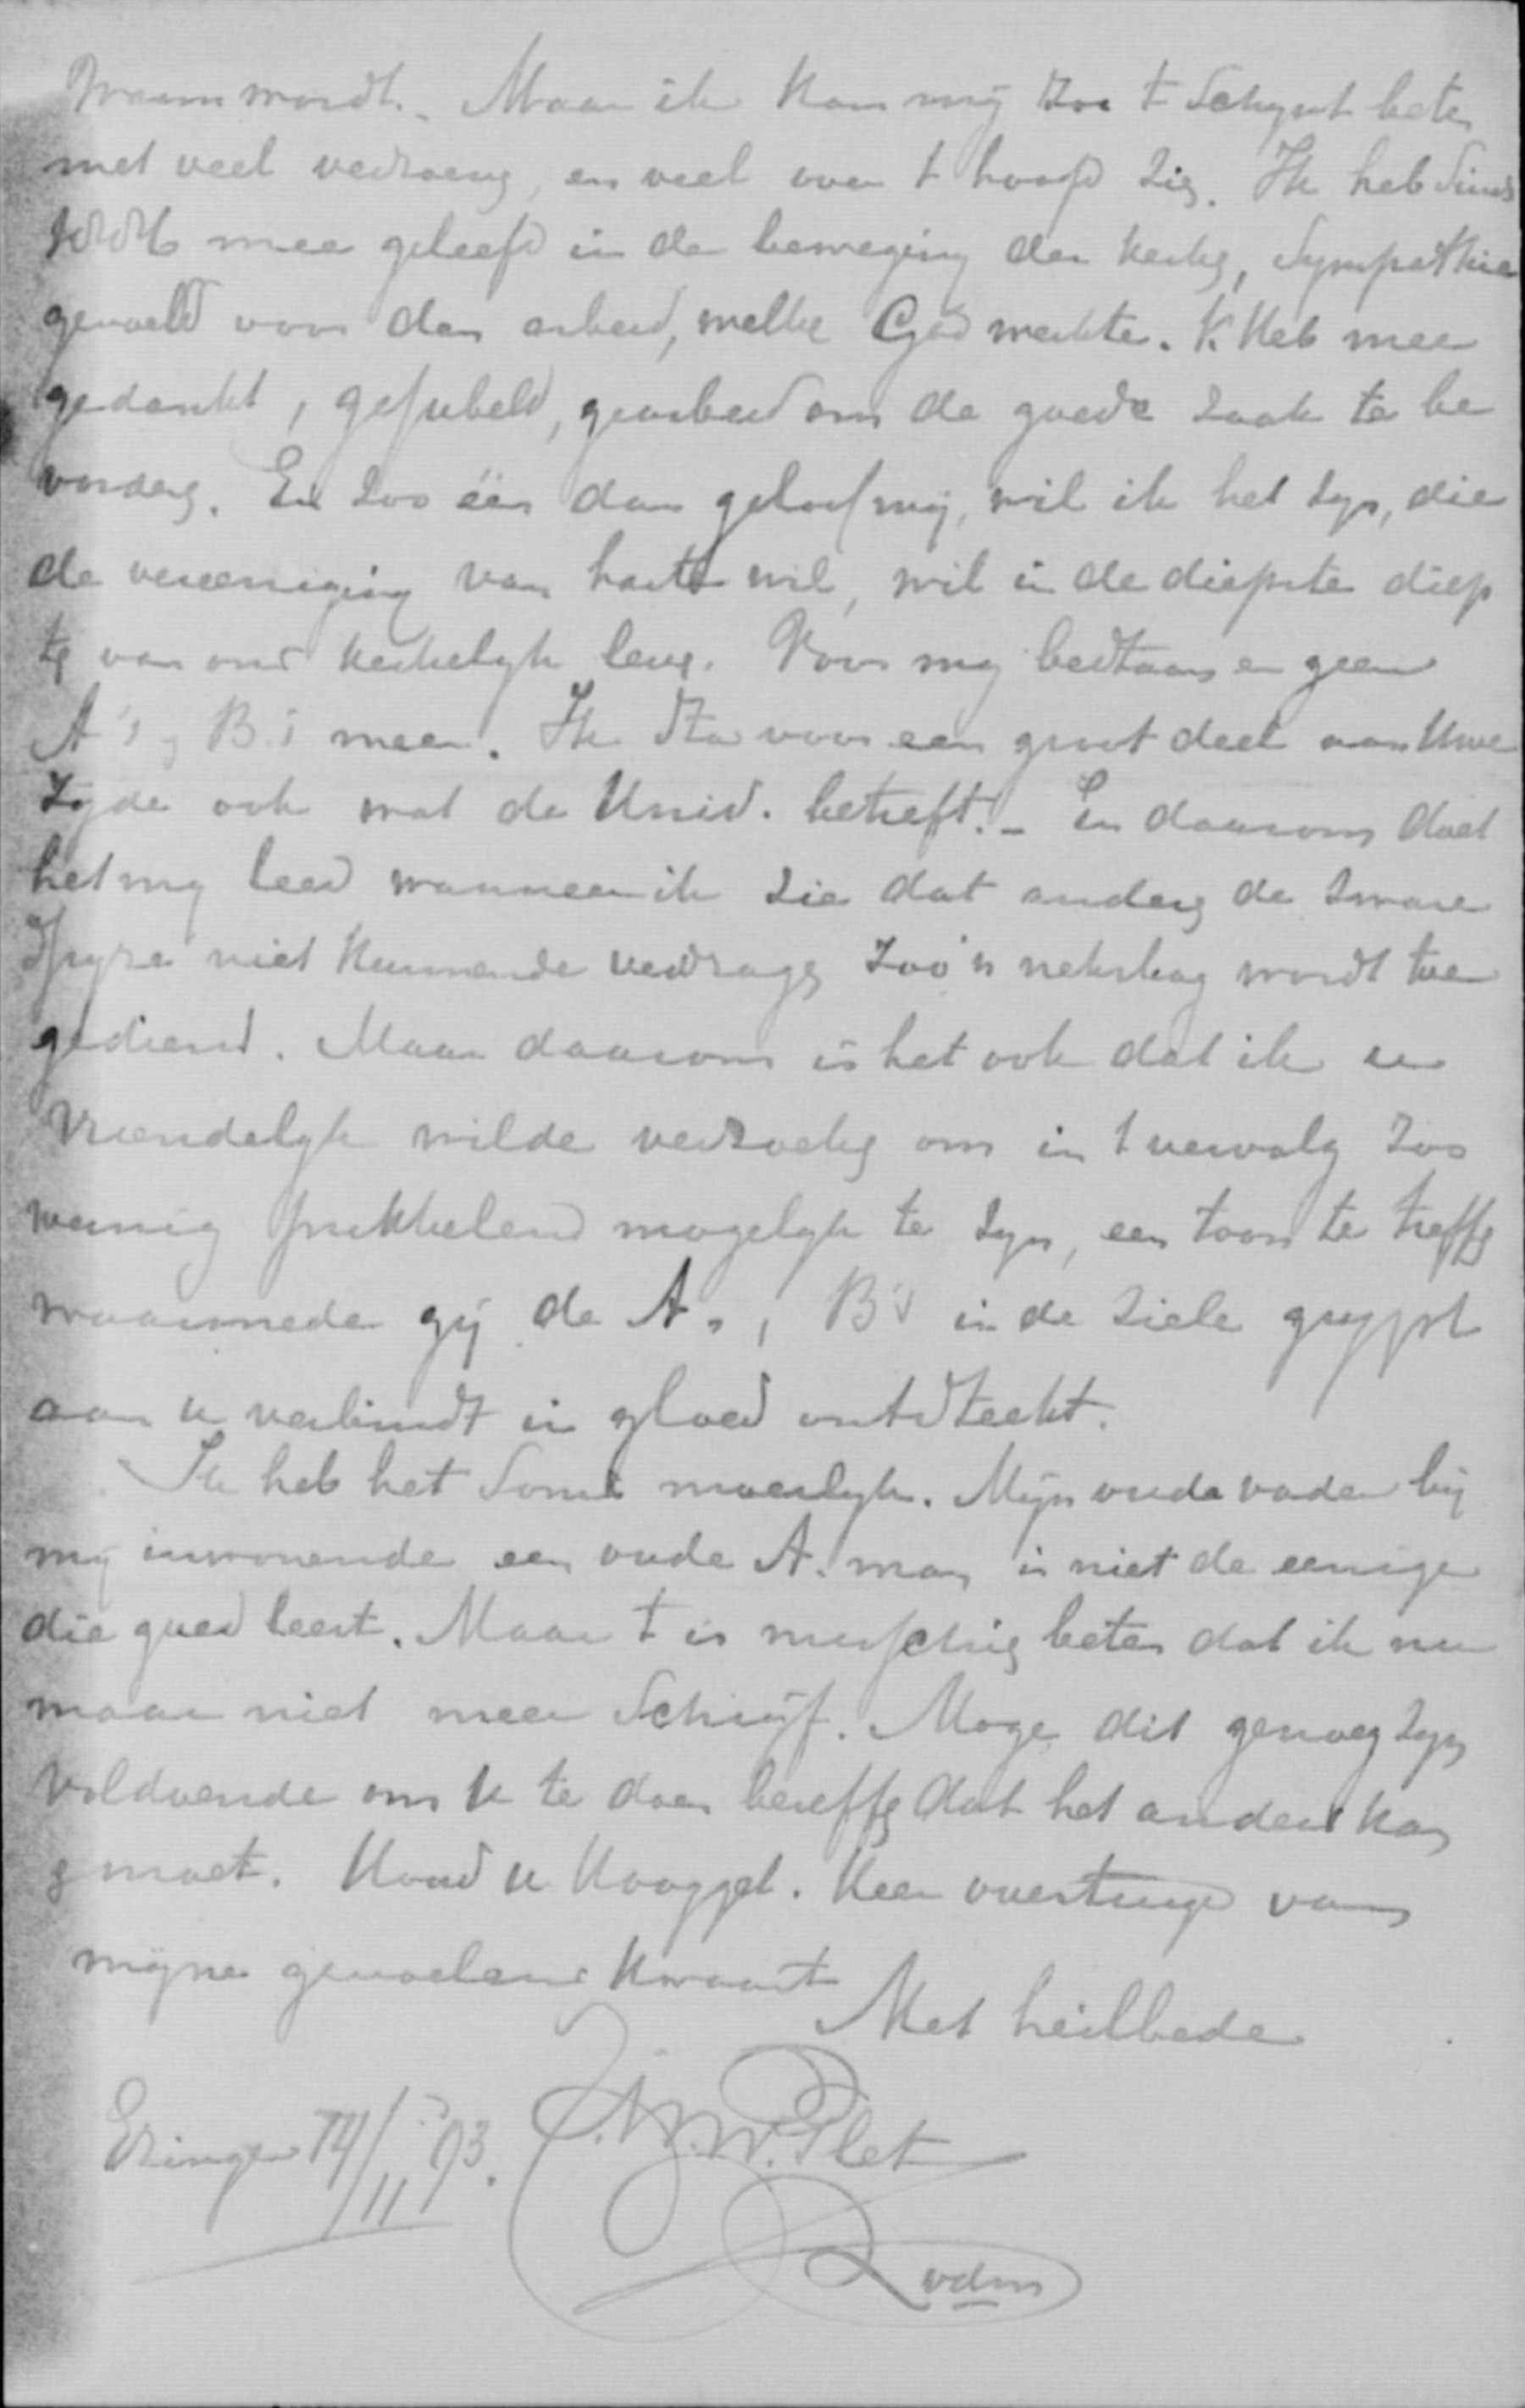 warm wordt. Maar ik kan mij zoo 't schynt beter
met veel verzoeng, en veel over 't hoofd zieg. Ik heb sinds
mee geleefd in de beweging der kerkg, sympathie
gevoeld voor den arbeid, welke God werkte. K heb mee
gedankt, gejubeld, gearbeid om de goede zaak te be
vorderg. En zoo één dan geloof mij, wil ik het zyn, die
de vereeniging van harte wil, wil in de diepste diep
tg van ons kerkelyk leveg. Voor my bestaan er geen
A's, B.s meer. Ik sta voor een groot deel aan Uwe
zyde ook wat de Unid. betreft. - En daarom doet
het my leed wanneer ik zie dat anderg de zware
spyze niet kunnende verdrage zoo'n nekslag wordt toe
gediend. Maar daarom is het ook dat ik u
vriendelyk wilde verzoekg om in 't vervolg zoo
weinig prikkelend mogelyk te zyn, een toon te treffg
waarmede gij de A.s, B's in de ziele grypt
aan u verbindt in gloed ontsteekt.
Ik heb het soms moeilyk. Mijn oude vader bij
mij inwonende een oude A. man is niet de eenige
die goed leest. Maar 't is misschieg beter dat ik nu
maar niet meer schrijf. Moge dit genoeg zyn
voldoende om U te doen beseffg dat het anders kan
g moet. Houd u Hooggel. Heer overtuigd van
mijne gevoelens Uwaart
Met heilbede
Eringen 14/11 93. J.W.W. Plet
vdm